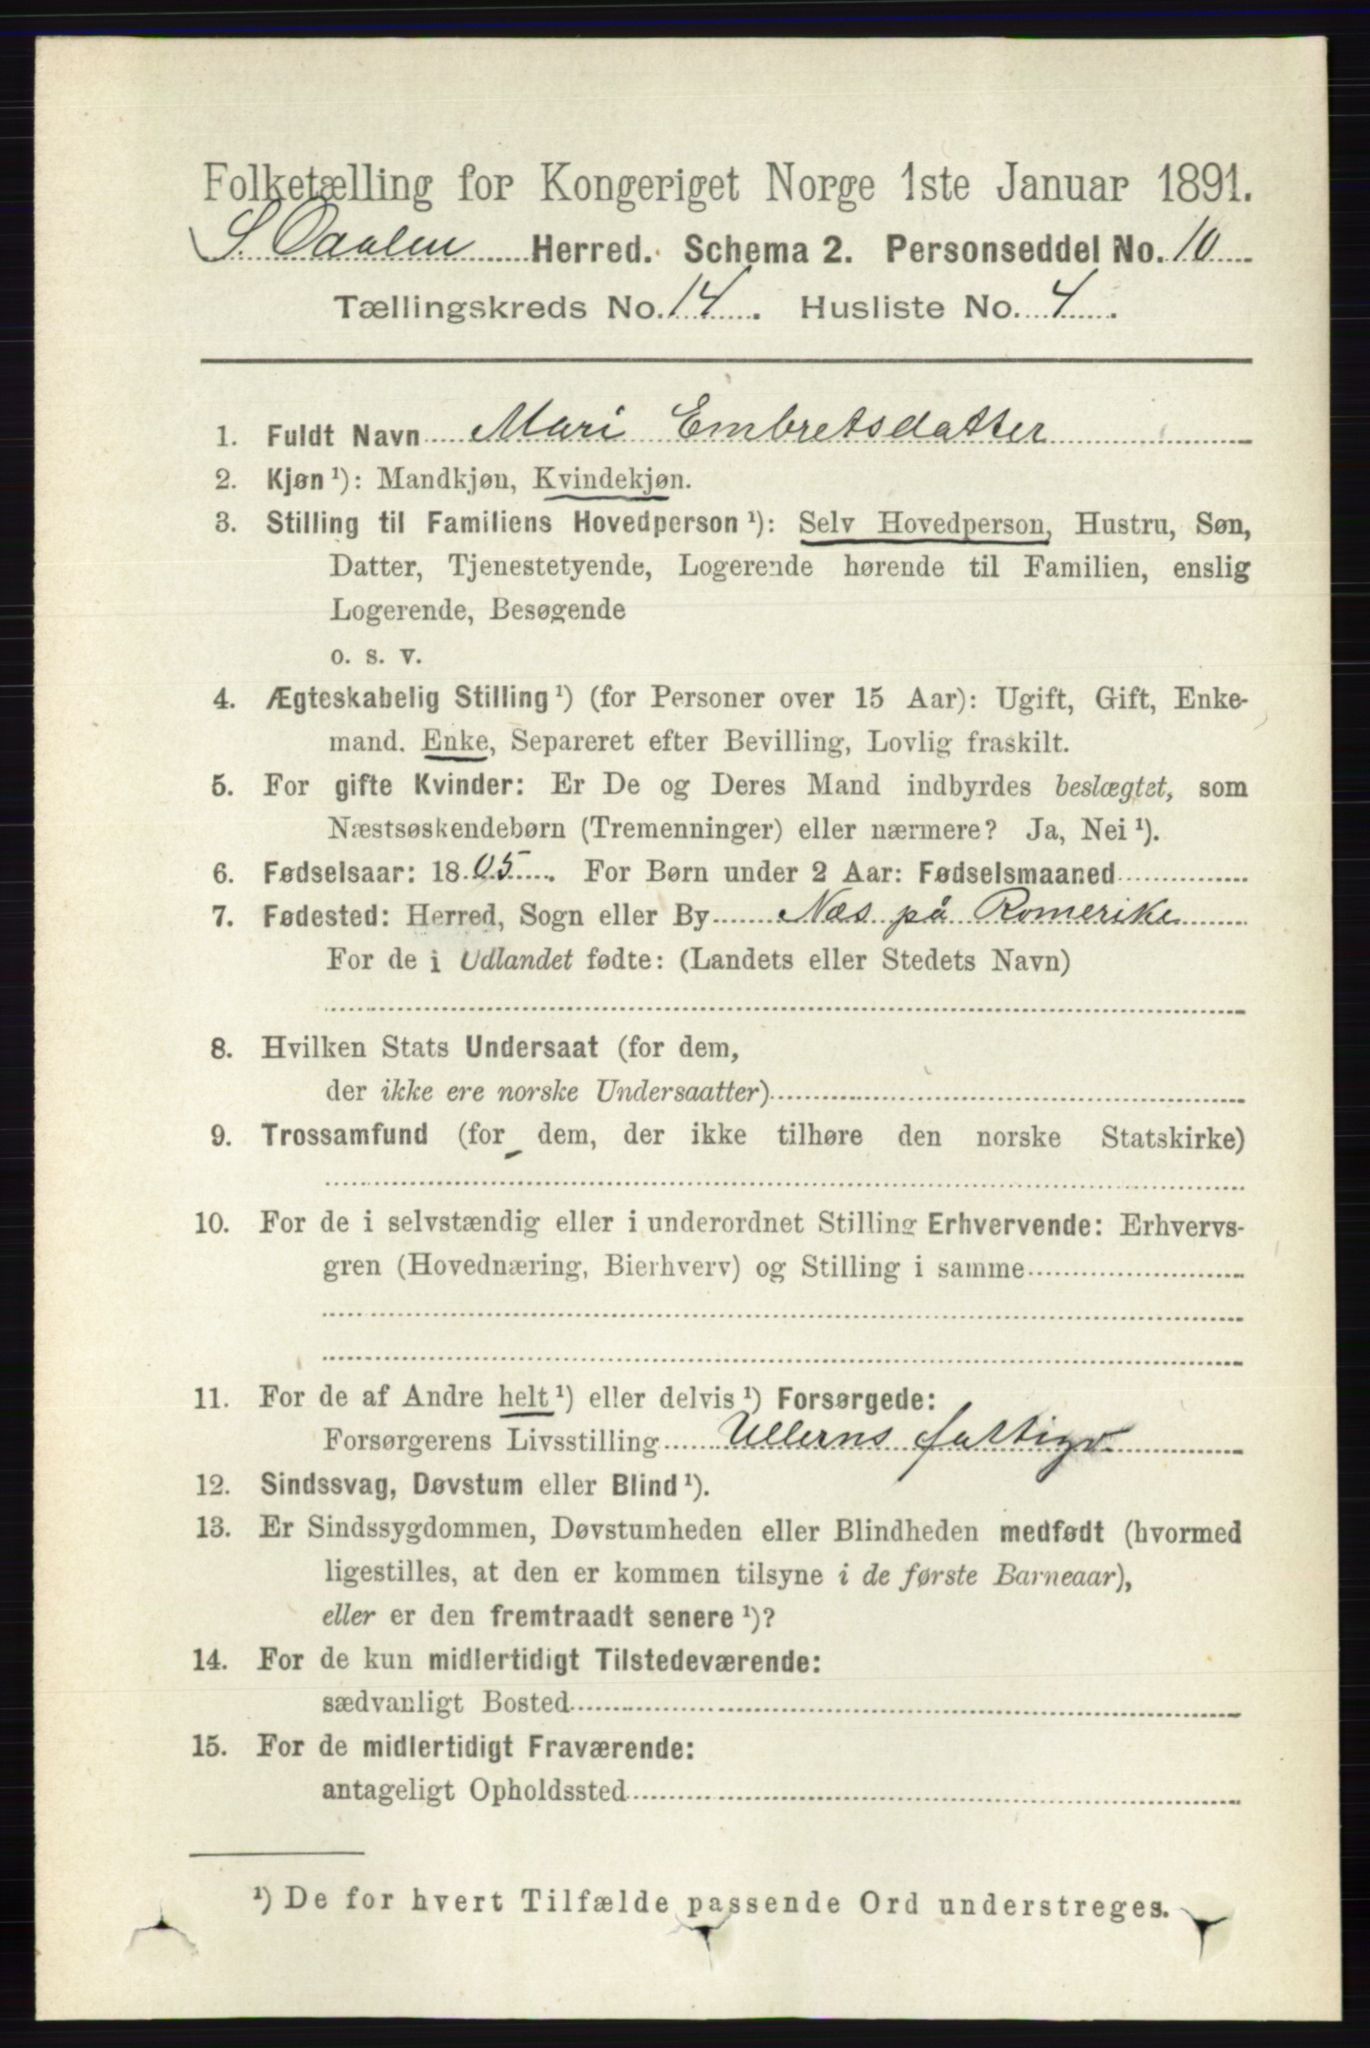 Folketælling for Kongeriget Norge 1ste Januar 1891.
S. Odalen Herred. Schema 2. Personseddel No. 10
Tællingskreds No. 14. Husliste No. 4.
1. Fuldt Navn Mari Embretsdatter
2. Kjøn ¹): Mandkjøn, Kvindekjøn.
3. Stilling til Familiens Hovedperson ¹): Selv Hovedperson, Hustru, Søn,
Datter, Tjenestetyende, Logerende hørende til Familien, enslig
Logerende, Besøgende
o. s. v.
4. Ægteskabelig Stilling ¹) (for Personer over 15 Aar): Ugift, Gift, Enke-
mand, Enke, Separeret efter Bevilling, Lovlig fraskilt.
5. For gifte Kvinder: Er De og Deres Mand indbyrdes beslægtet, som
Næstsøskendebørn (Tremenninger) eller nærmere? Ja, Nei ¹).
6. Fødselsaar: 1805. For Børn under 2 Aar: Fødselsmaaned
7. Fødested: Herred, Sogn eller By Næs på Romerike
For de i Udlandet fødte: (Landets eller Stedets Navn)
8. Hvilken Stats Undersaat (for dem,
der ikke ere norske Undersaatter)
9. Trossamfund (for dem, der ikke tilhøre den norske Statskirke)
10. For de i selvstændig eller i underordnet Stilling Erhvervende: Erhvervs-
gren (Hovednæring, Bierhverv) og Stilling i samme
11. For de af Andre helt ¹) eller delvis ¹) Forsørgede:
Forsørgerens Livsstilling Ullerns fattigv
12. Sindssvag, Døvstum eller Blind ¹).
13. Er Sindssygdommen, Døvstumheden eller Blindheden medfødt (hvormed
ligestilles, at den er kommen tilsyne i de første Barneaar),
eller er den fremtraadt senere ¹)?
14. For de kun midlertidigt Tilstedeværende:
sædvanligt Bosted
15. For de midlertidigt Fraværende:
antageligt Opholdssted
¹) De for hvert Tilfælde passende Ord understreges.